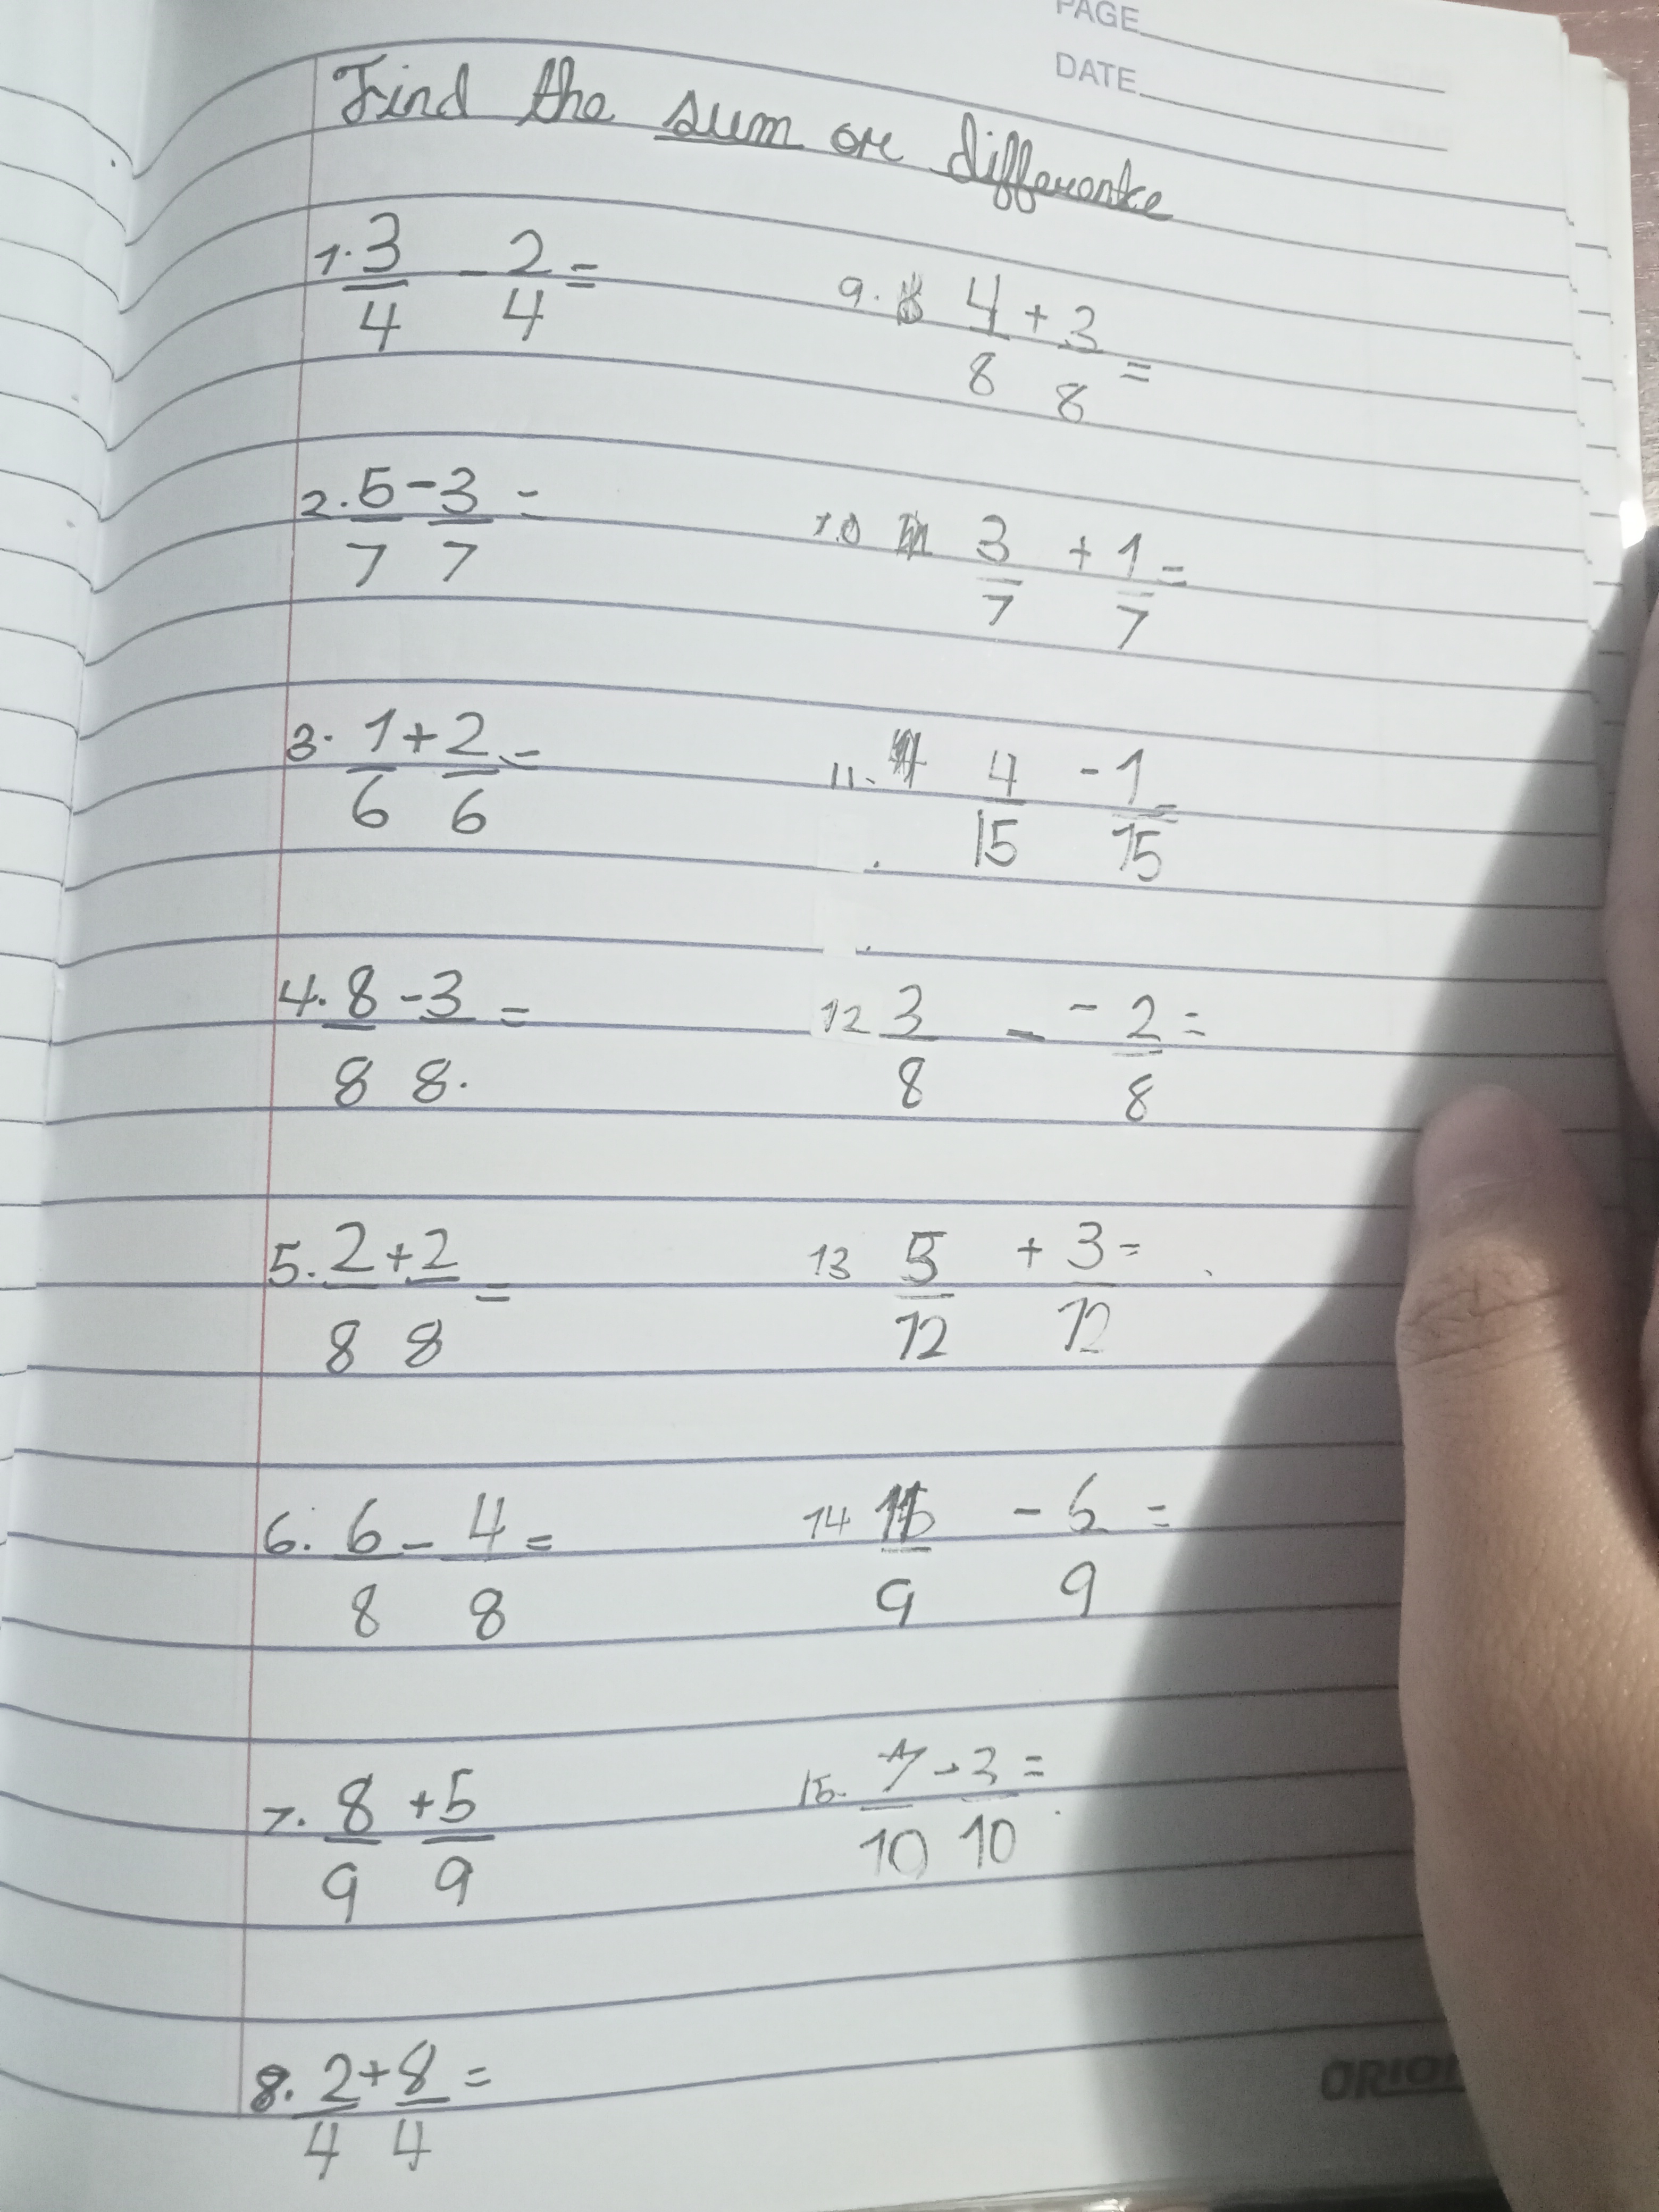 PAGE
DATE
Find the sum or differentce
1. 3/4 - 2/4 =
2. 5/7 - 3/7 =
3. 1/6 + 2/6 =
4. 8/8 - 3/8 =
5. 2/8 + 2/8 =
6. 6/8 - 4/8 =
7. 8/9 + 5/9
8. 2/4 + 8/4 =
9. 4/8 + 3/8 =
10 3/7 + 1/7 =
11. 4/15 - 1/15 =
12 3/8 - - 2/8 =
13 5/12 + 3/12 =
14 /9 - /9 =
15. 7/10 - 3/10 =
ORIO